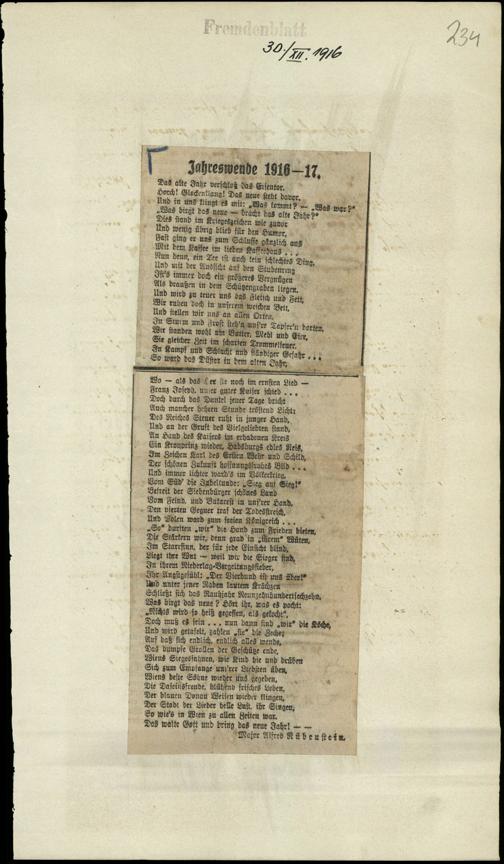 Fremdenblatt
234
30./XII. 1916
Jahreswende 1916—17.
Das alte Jahr verschloß das Eisentor.
Horch! Glockenklang! Das neue steht davor.
Und in uns klingt es mit: „Was kommt? — „Was war?"
„Was birgt das neue — bracht das alte Jahr?"
Dies stand im Kriegszeichen wie zuvor
Und wenig übrig blieb für den Humor,
Fast ging er uns zum Schlusse gänzlich aus
Mit dem Kaffee im lieben Kaffeehaus . . .
Nun denn, ein Tee ist auch kein schlechtes Ding,
Und mit der Aussicht auf den Stubenring
Ist's immer doch ein größeres Vergnügen
Als draußen in dem Schützengraben liegen.
Und wird zu teuer uns das Fleisch und Fett,
Wir ruhen doch in unserem weichen Bett,
Und stellen wir uns an allen Orten,
In Sturm und Frost steh'n uns're Tapfer'n dorten.
Wir standen wohl um Butter, Mehl und Eier,
Sie gleicher Zeit im scharfen Trommelfeuer.
In Kampf und Schlacht und ständiger Gefahr . . .
So ward das Düster in dem alten Jahr,
Wo — als das er sie noch im ernsten Lied —
Franz Joseph, unser guter Kaiser schied . . .
Doch durch das Dunkel jener Tage bricht
Auch mancher hehren Stunde tröstend Licht:
Des Reiches Steuer ruht in junger Hand,
Und an der Gruft des Vielgeliebten stand,
An Hand des Kaisers im erhabenen Kreis
Ein Kronprinz wieder, Habsburgs edles Reis,
Im Zeichen Karl des Ersten Wehr und Schild,
Der schönen Zukunft hoffnungsfrohes Bild . . .
Und immer lichter ward's im Völkerkrieg,
Vom Süd' die Jubelkunde: „Sieg auf Sieg!"
Befreit der Siebenbürger schönes Land
Vom Feind, und Bukarest in uns'rer Hand.
Den vierten Gegner traf der Todesstreich,
Und Polen ward zum freien Königreich . . .
„So" durften „wir" die Hand zum Frieden bieten,
Die Stärkern wir, denn grad in „ihrem" Wüten,
Im Starrsinn, der für jede Einsicht blind,
Liegt ihre Wut — weil wir die Sieger sind,
In ihrem Niederlag-Vergeltungsfieber,
Ihr Angstgefühl: „Der Vierbund ist uns über!"
Und unter jener Raben lautem Krächzen
Schließt sich das Rauhjahr Neunzehnhundertsechzehn.
Was birgt das neue? Hört ihr, was es pocht:
„Nichts wird so heiß gegessen, als gekocht".
Doch muß es sein . . . nun dann sind „wir" die Köche,
Und wird getafelt, zahlen „sie" die Zeche;
Auf daß sich endlich, endlich alles wende,
Das dumpfe Grollen der Geschütze ende,
Wiens Siegesfahnen, wie hind hie und drüben
Sich zum Empfange uns'rer Liebsten üben,
Wiens beste Söhne wieder uns gegeben,
Die Daseinsfreude, blühend frisches Leben,
Der blauen Donau Weisen wieder klingen,
Der Stadt der Lieder helle Lust, ihr Singen,
So wie's in Wien zu allen Zeiten war.
Das walte Gott und bring das neue Jahr! — —
Major Alfred Rübenstein.